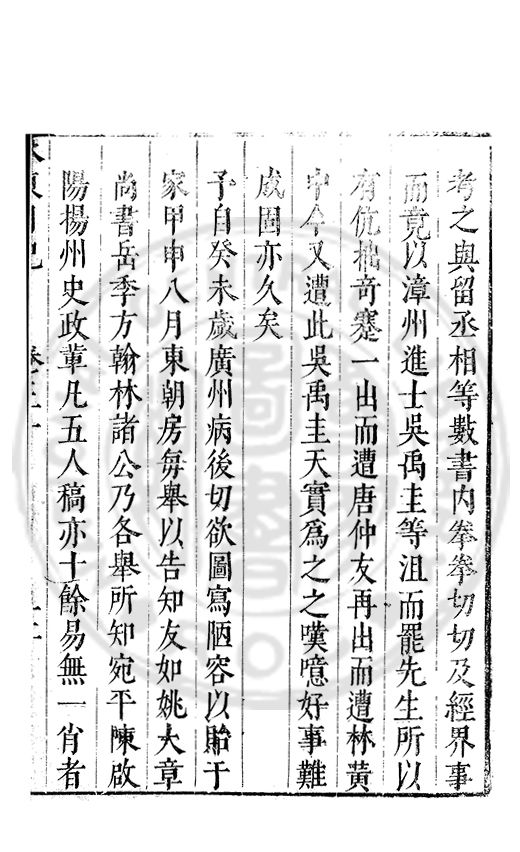 考之與留丞相等數書內拳拳切切及經界事
而竟以漳州進士吳禹圭等沮而罷先生所以
有仇抛奇蹇一出而遭唐仲友再出而遭林黃
中今又遭此吳禹圭天實爲之之嘆噫好事難
成固亦久矣
予自癸未歲廣州病後切欲圖寫陋容以貽于
家甲申八月東朝房每舉以告知友如姚大章
尚書岳季方翰林諸公乃各舉所知宛平陳啟
陽揚州史政輩凡五人稿亦十餘易無一肖者
水東日記 卷三十